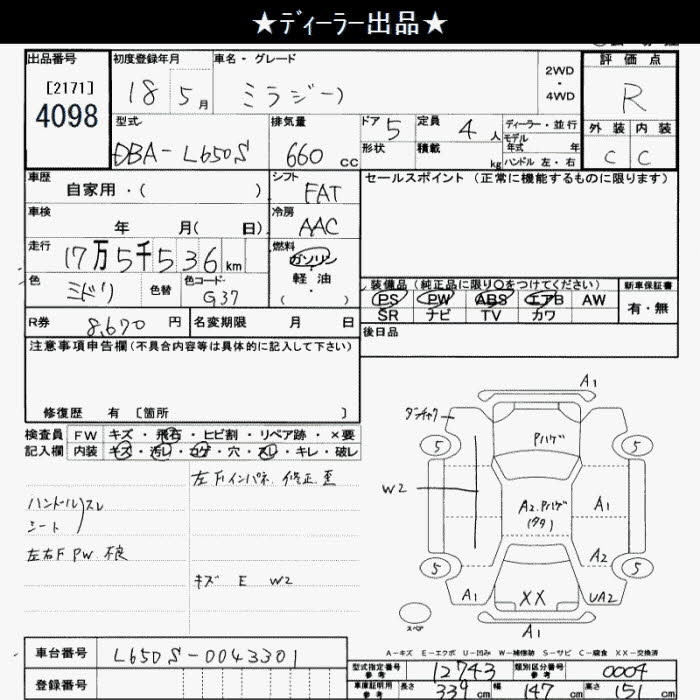 ★ディーラー出品★
出品番号 初度登録年月 車名・グレード 2WD・4WD 評価点
[2171] 4098 18 5月 ミラジーノ R
型式 排気量 ドア 5 定員 4人 ディーラー・並行 外装 内装
DBA-L650S 660cc 形状 積載 kg モデル年式 年 C C
ハンドル 左・右
車歴 シフト セールスポイント (正常に機能するものに限ります)
自家用・( ) FAT
車検 冷房
年 月( 日) AAC
走行 17万5千536km 燃料 ガソリン
軽油
( ・ )
色 ミドリ 色替 色コード G37
装備品 (純正品に限り○をつけてください) 新車保証書
PS PW ABS エアB AW 有・無
SR ナビ TV カワ
R券 8,670円 名変期限 月 日 後日品
注意事項申告欄(不具合内容等は具体的に記入して下さい)
修復歴 有 [箇所 ]
検査員 FW キズ・飛石・ヒビ割・リペア跡・×要
記入欄 内装 キズ・汚レ・コゲ・穴・スレ・キレ・破レ
左FインパネL 修正 歪
ハンドル スレ
シート
左右F PW 不良
キズ E W2
A1
5 Pハゲ 5
W2
A2.Pハゲ A1
A2
5 5
A1 XX UA2
スペア
A1
A-キズ E-エクボ U-凹み W-補修跡 S-サビ C-腐食 XX-交換済
車台番号 L650S-0043301
型式指定番号 参考 12743 類別区分番号 参考 0004
登録番号
車庫証明用 参考 長さ 339cm 幅 147cm 高さ 151cm